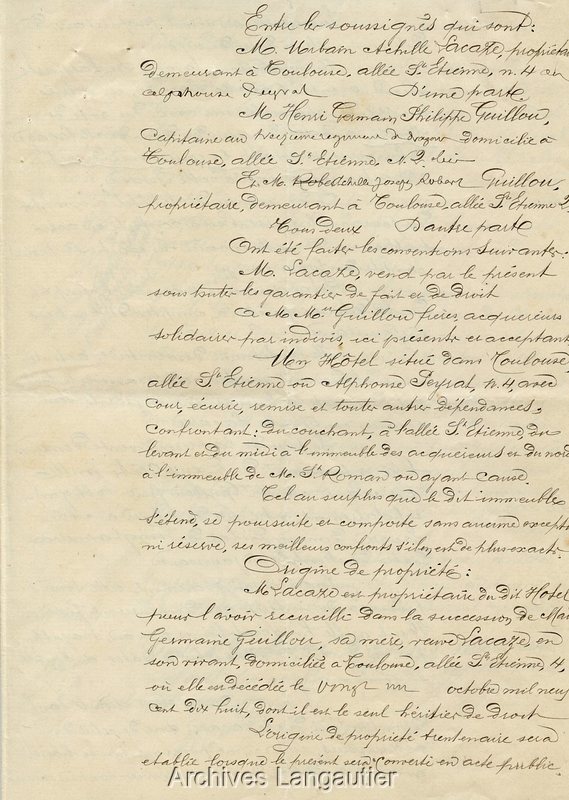 Entre les soussignés qui sont:
M. Urbain Achille Lacaze, propriétai
demeurant à Toulouse, allée St Etienne, n. 4 ou
alphonse Peyrat D'une part
M. Henri Germain Philippe Guillou,
Capitaine au treizième régiment de dragon domicilié à
Toulouse, allée St Etienne, N. 2 bis
Et M. Achille Joseph Robert Guillou,
propriétaire, demeurant à Toulouse, allée St Etienne 2
Tous deux D'autre part
Ont été faites les conventions suivantes:
M. Lacaze, vend par le présent
sous toutes les garanties de fait et de droit
A M. Mrs Guillou frères, acquéreurs
solidaires par indivis, ici présents et acceptant
Un Hôtel situé dans Toulouse,
allée St Etienne ou Alphonse Peyrat, n. 4, avec
cour, écurie, remise et toutes autres dépendances,
confrontant: du couchant, à l'allée St Etienne, du
levant et du midi à l'immeuble des acquéreurs et du nord
à l'immeuble de M. St Roman ou ayant cause.
Tel au surplus que le dit immeuble
s'étend, se poursuite et comporte sans aucune except
ni réserve, ses meilleurs confronts s'il y en est de plus exacts.
Origine de propriété:
M. Lacaze est propriétaire du dit Hôtel
pour l'avoir recueilli dans la succession de Mar
Germaine Guillou sa mère, veuve Lacaze, en
son vivant, domiciliée à Toulouse, allée St Etienne, 4,
où elle est décédée le vingt un octobre mil neuf
cent dix huit, dont il est le seul héritier de droit
L'origine de propriété trentenaire sera
établie lorsque le présent sera converti en acte public.
Archives Langautier